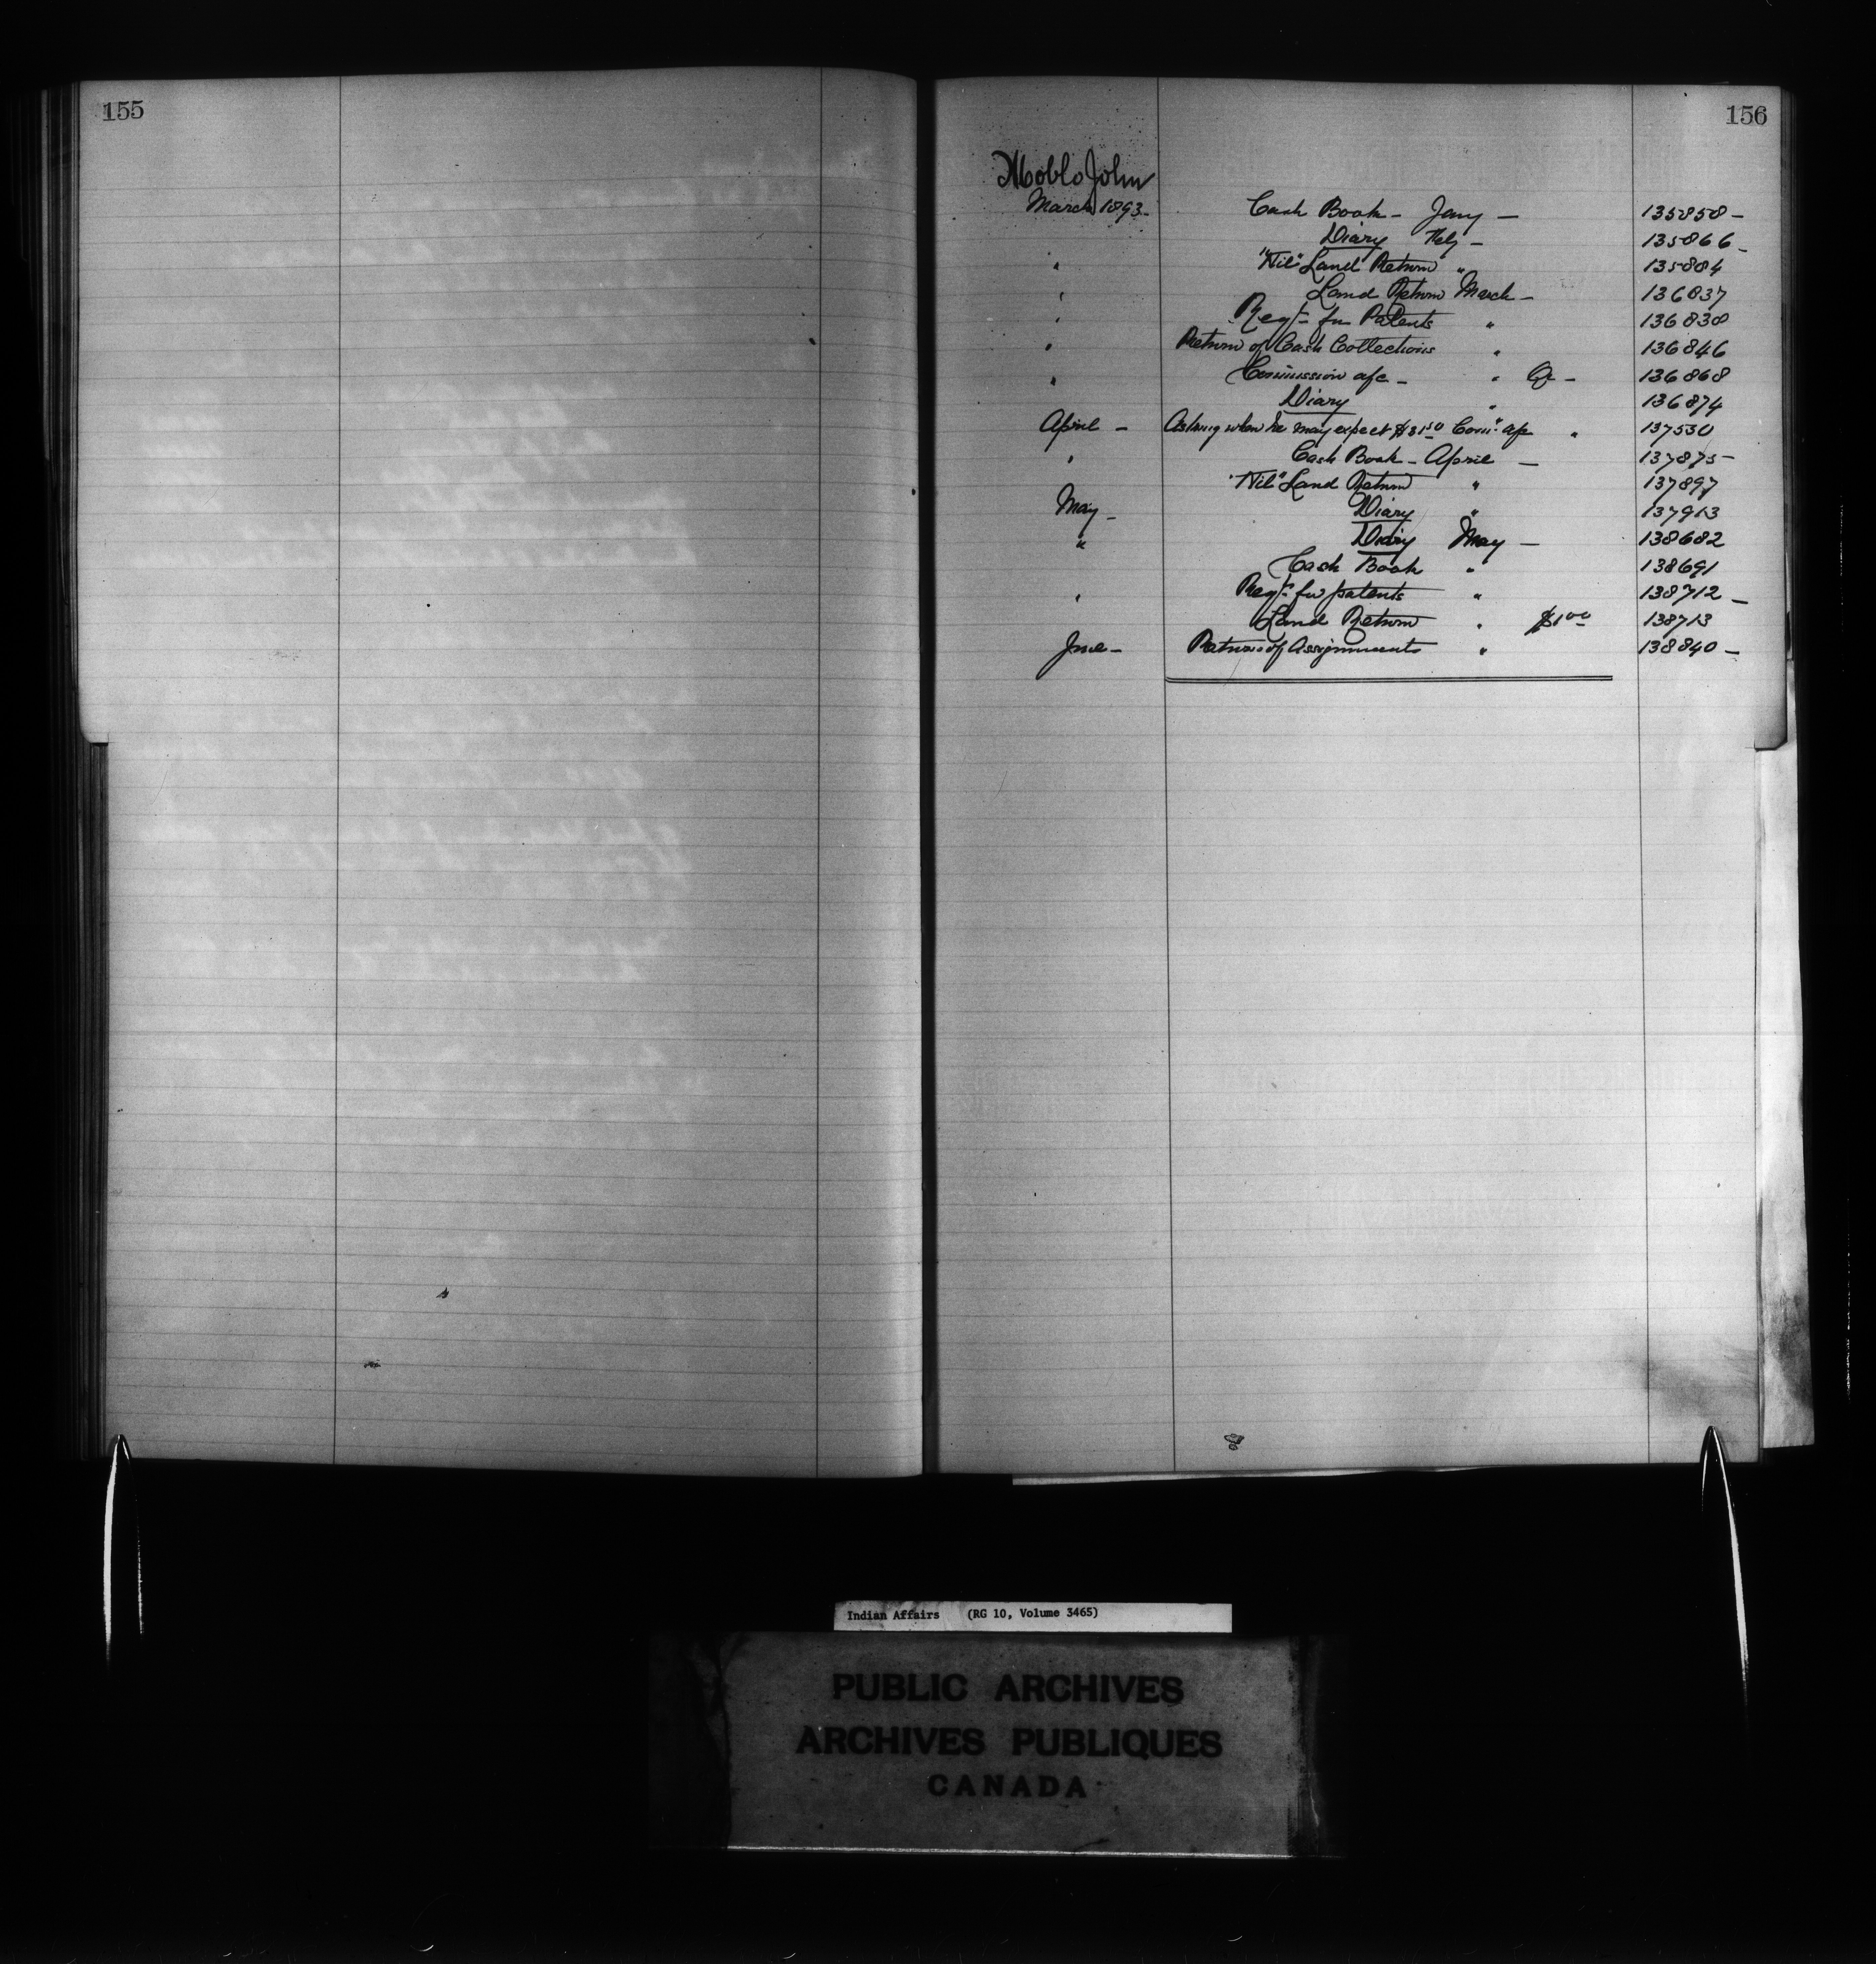 155
156
John
March 1893-
Cash Book - Jany - 135858 -
Diary Feby - 135866 -
" "Nil" Land Return " 135884
" Land Return March - 136837
" Reqt- for Patents " 136838
" Return of Cash Collections " 136846
" Commission a/c - " 136868
Diary " 136874
April - Asking when he may expect $31.50 Comn a/c " 137530
" Cash Book - April - 137875 -
"Nil" Land Return " 137897
May - Diary " 137913
" Diary May - 138682
Cash Book " 138691
" Reqt- for patents " 138712 -
Land Return " $1 00 138713
June - Return of Assignments " 138840 -
Indian Affairs (RG 10, Volume 3465)
PUBLIC ARCHIVES
ARCHIVES PUBLIQUES
CANADA